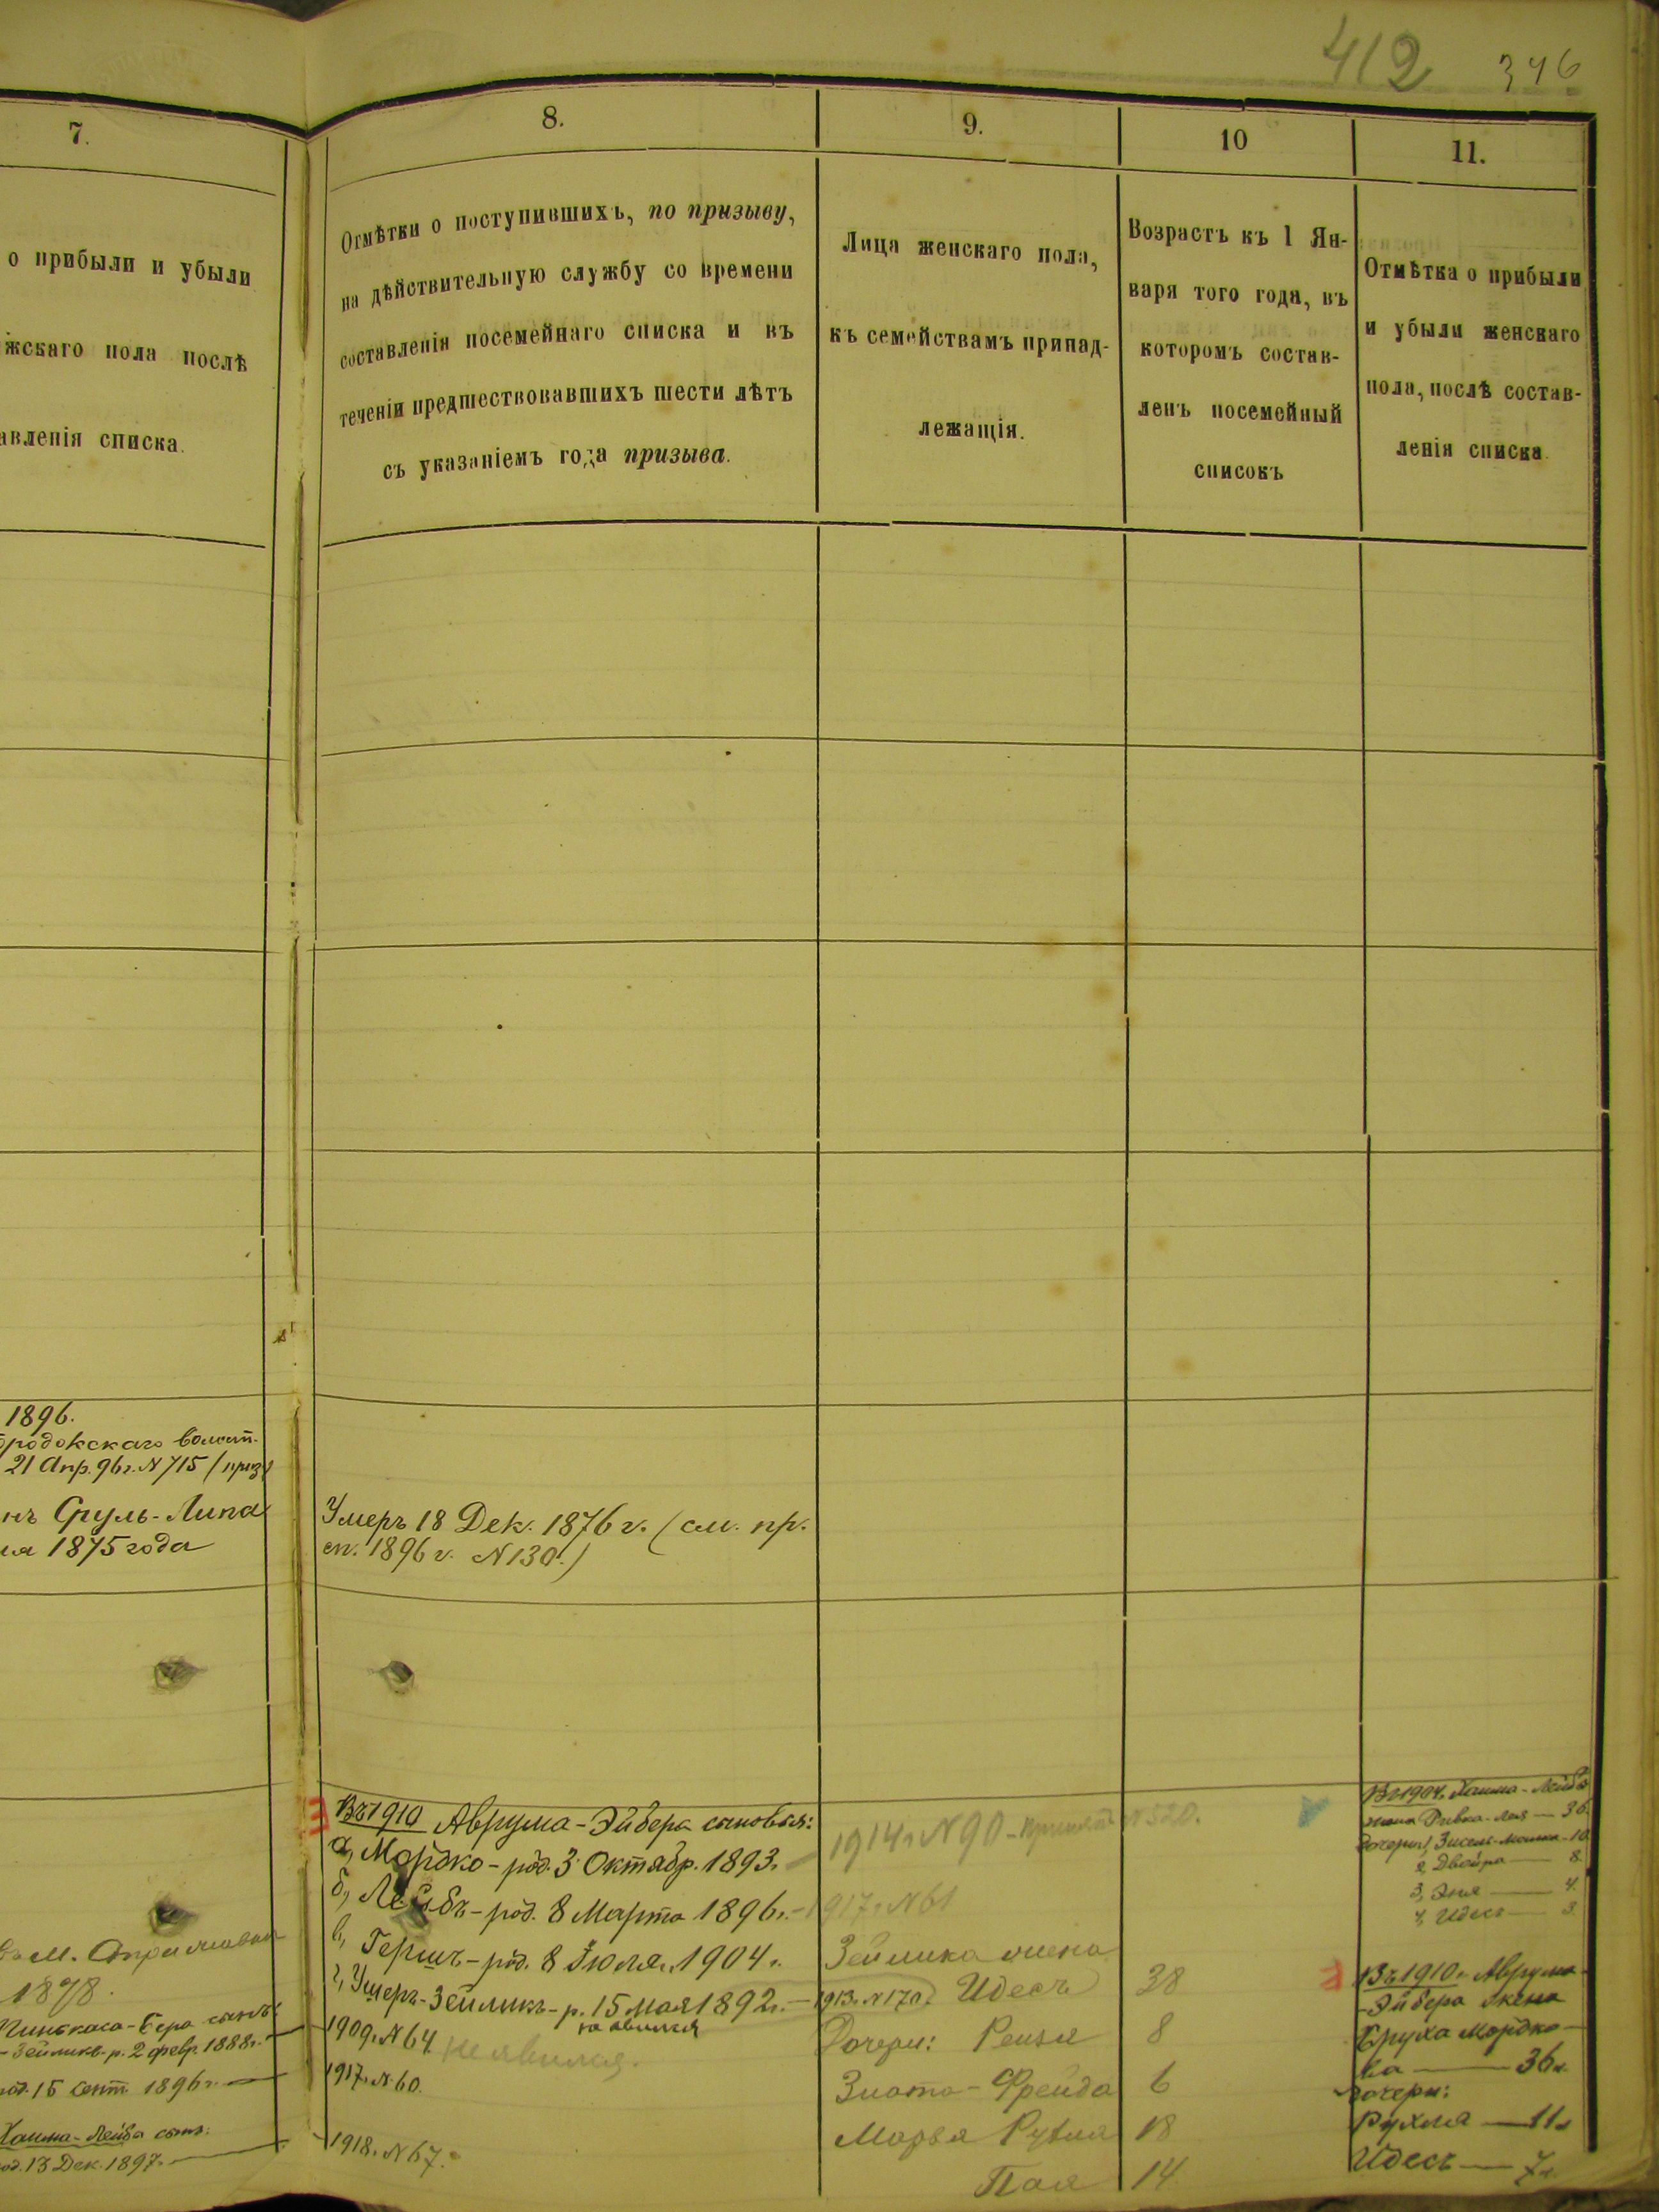 412 346
7.
8.
9.
10
11.
о прибыли и убыли
жскаго пола послѣ
авленія списка.
Отмѣтки о поступившихъ, по призыву,
на дѣйствительную службу со времени
составленія посемейнаго списка и въ
теченіи предшествовавшихъ шести лѣтъ
съ указаніемъ года призыва.
Лица женскаго пола,
къ семействамъ принад-
лежащія.
Возрастъ къ 1 Ян-
варя того года, въ
которомъ состав-
ленъ посемейный
списокъ
Отмѣтка о прибыли
и убыли женскаго
пола, послѣ состав-
ленія списка.
1896.
ородокскаго волост.
21 Апр. 96 г. N 715 (приз)
нъ Сруль-Липа
ля 1875 года
Умеръ 18 Дек. 1876 г. (см. пр.
сп. 1896 г. N 130.)
1878.
Пинхаса-Бера сынъ
-Зейликъ-р. 2 февр. 1888 г.
род. 15 сент. 1896 г.
Хаима-Лейба сынъ:
од. 13 Дек. 1897 г.
Въ 1910 Аврума-Эйбера сыновья:
а, Мордко - род. 3 Октябр. 1893 г.
б, Лейбъ - род. 8 Марта 1896 г.
в, Гершъ - род. 8 Іюля 1904 г.
г, Ушеръ-Зейликъ - р. 15 Мая 1892 г.
1909 г. N 64. не явился.
1917 г. N 60.
1918 г. N 67.
1914 г. N 90 - принятъ N 520.
1917 г. N 61
Зейлика жена
1913 г. N 170. Идесъ 38
Дочери: Рейзя 8
Злота-Фрейда 6
18
Пая 14
Въ 1904 г. Хаима-Лейба
жена Ривка-Лея — 36.
дочери: 1, Зисель-Малка - 10
2, Двойра — 8
3, Эня — 4
4, Идесъ — 3
Въ 1910 г. Аврума-
-Эйбера жена
Бруха Мордко-
ва — 36 л.
дочери:
Рухля — 11 л
Идесъ — 7 л.